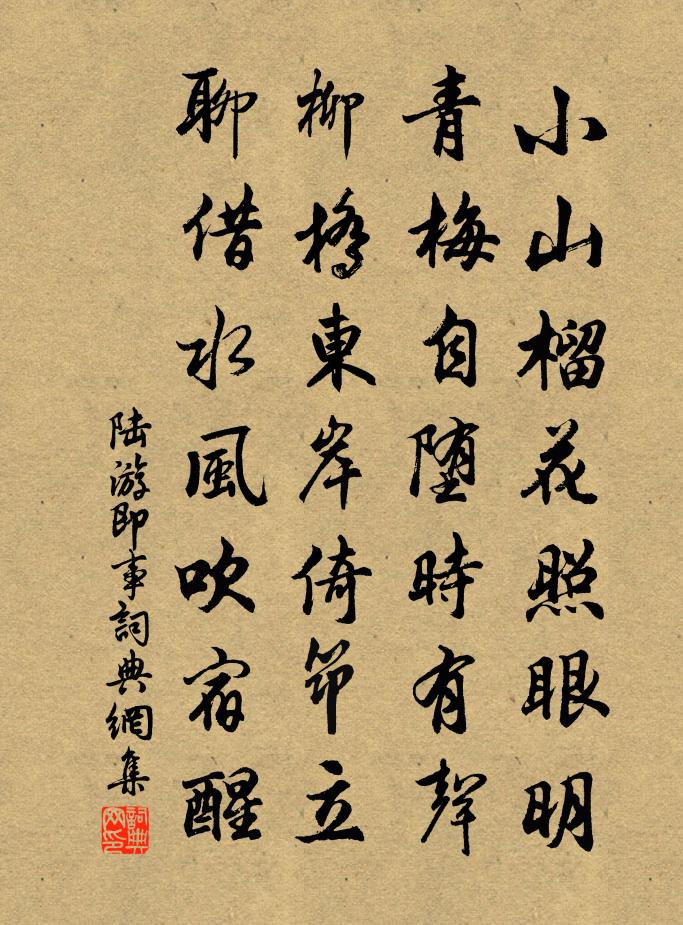 小山榴花照眼明
青梅自堕時有聲
柳橋東岸倚筇立
聊借水風吹宿醒
陆游即事詞典網集
詞典网印